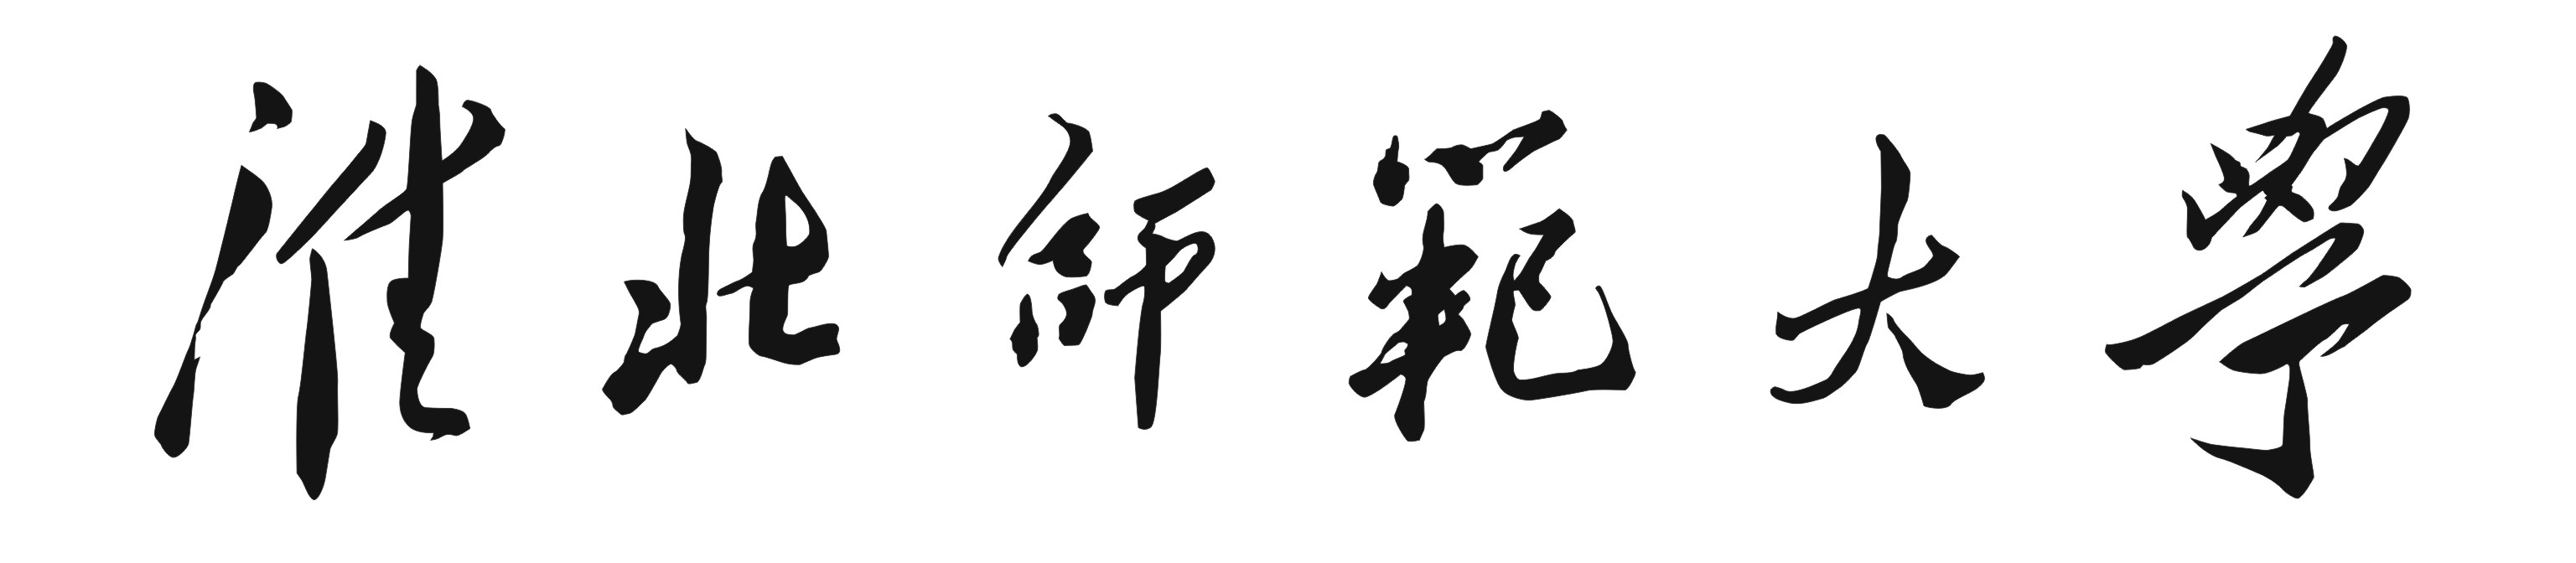 淮北师範大學